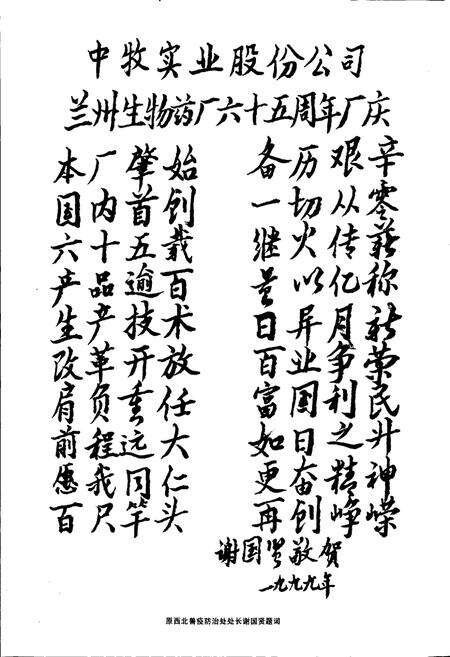 中牧实业股份公司
兰州生物药厂六十五周年厂庆
本厂肇始
国内首创
六十五载
产品逾百
生产技术
改革开放
肩负重任
前程远大
愿我同仁
百尺竿头
备历艰辛
一切从零
继火传薪
量以亿称
日异月新
百业争荣
富国利民
如日之升
更奋精神
再创峥嵘
谢国贤敬贺
一九九九年
原西北兽疫防治处处长谢国贤题词